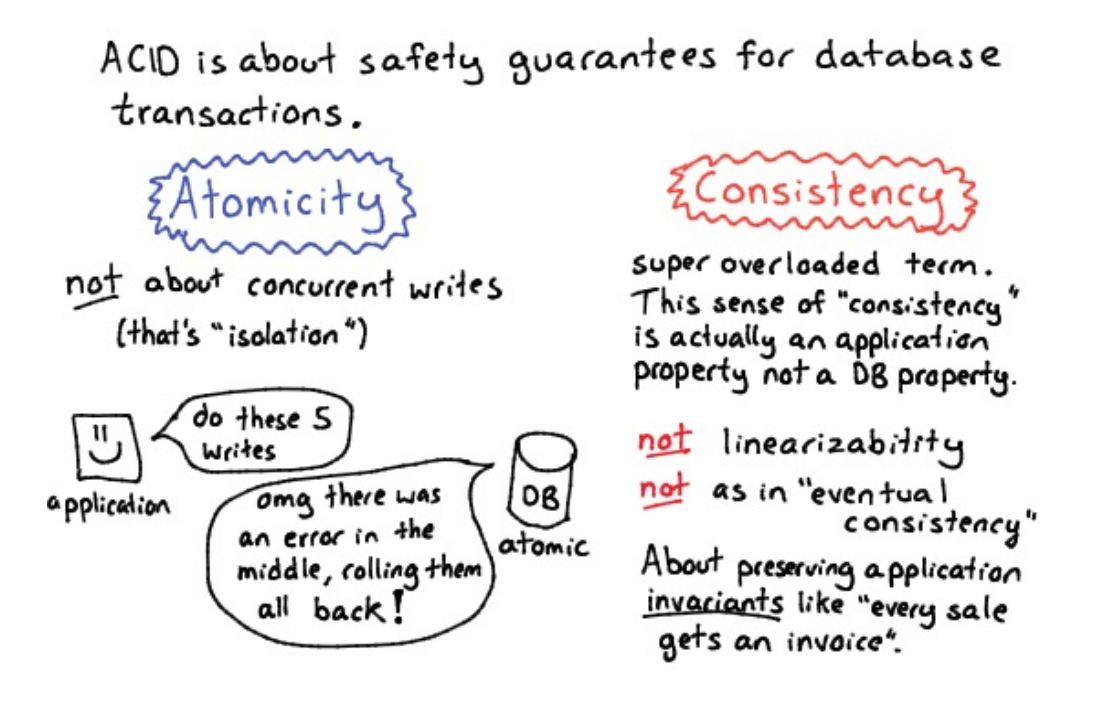 ACID is about safety guarantees for database
transactions.
Atomicity
not about concurrent writes
(that's "isolation")
do these 5
writes
application
omg there was
an error in the
middle, rolling them
all back!
DB
atomic
Consistency
super overloaded term.
This sense of "consistency"
is actually an application
property not a DB property.
not linearizability
not as in "eventual
consistency"
About preserving application
invariants like "every sale
gets an invoice".